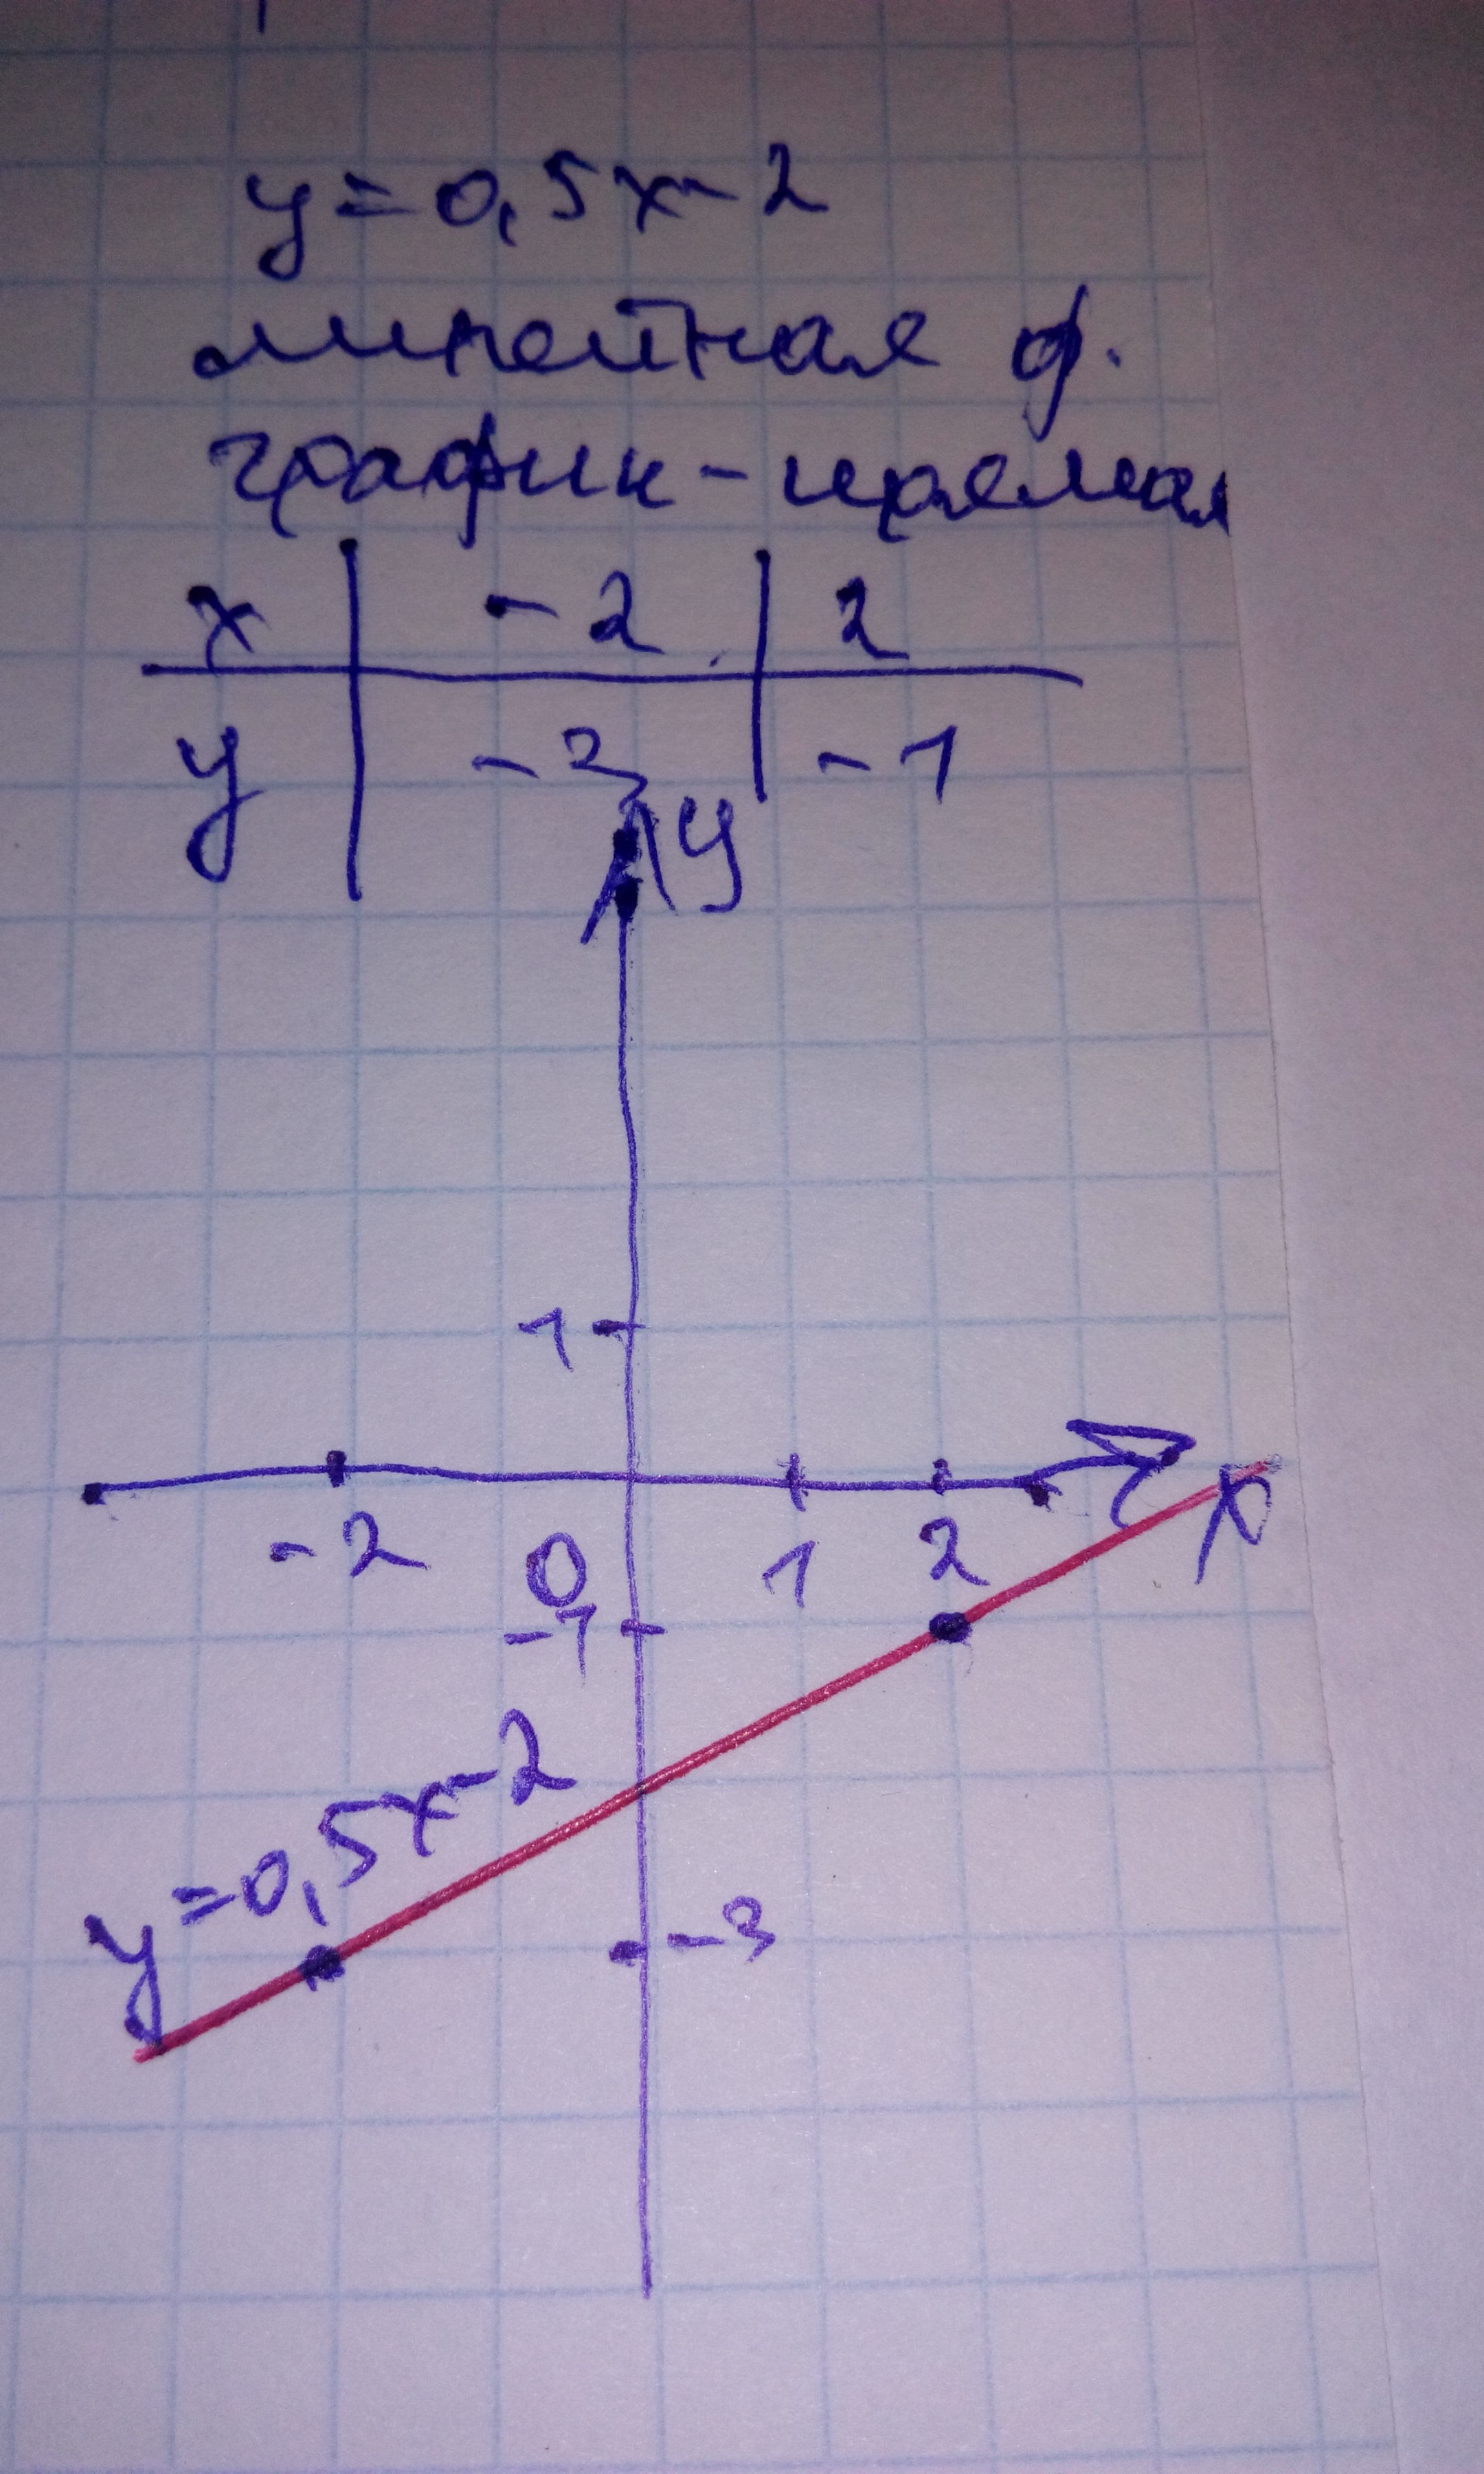 y=0,5x-2
линейная ф.
график - прямая
x -2 2
y -3 -1
y
1
x
-2 0 1 2
-1
y=0,5x-2
-3